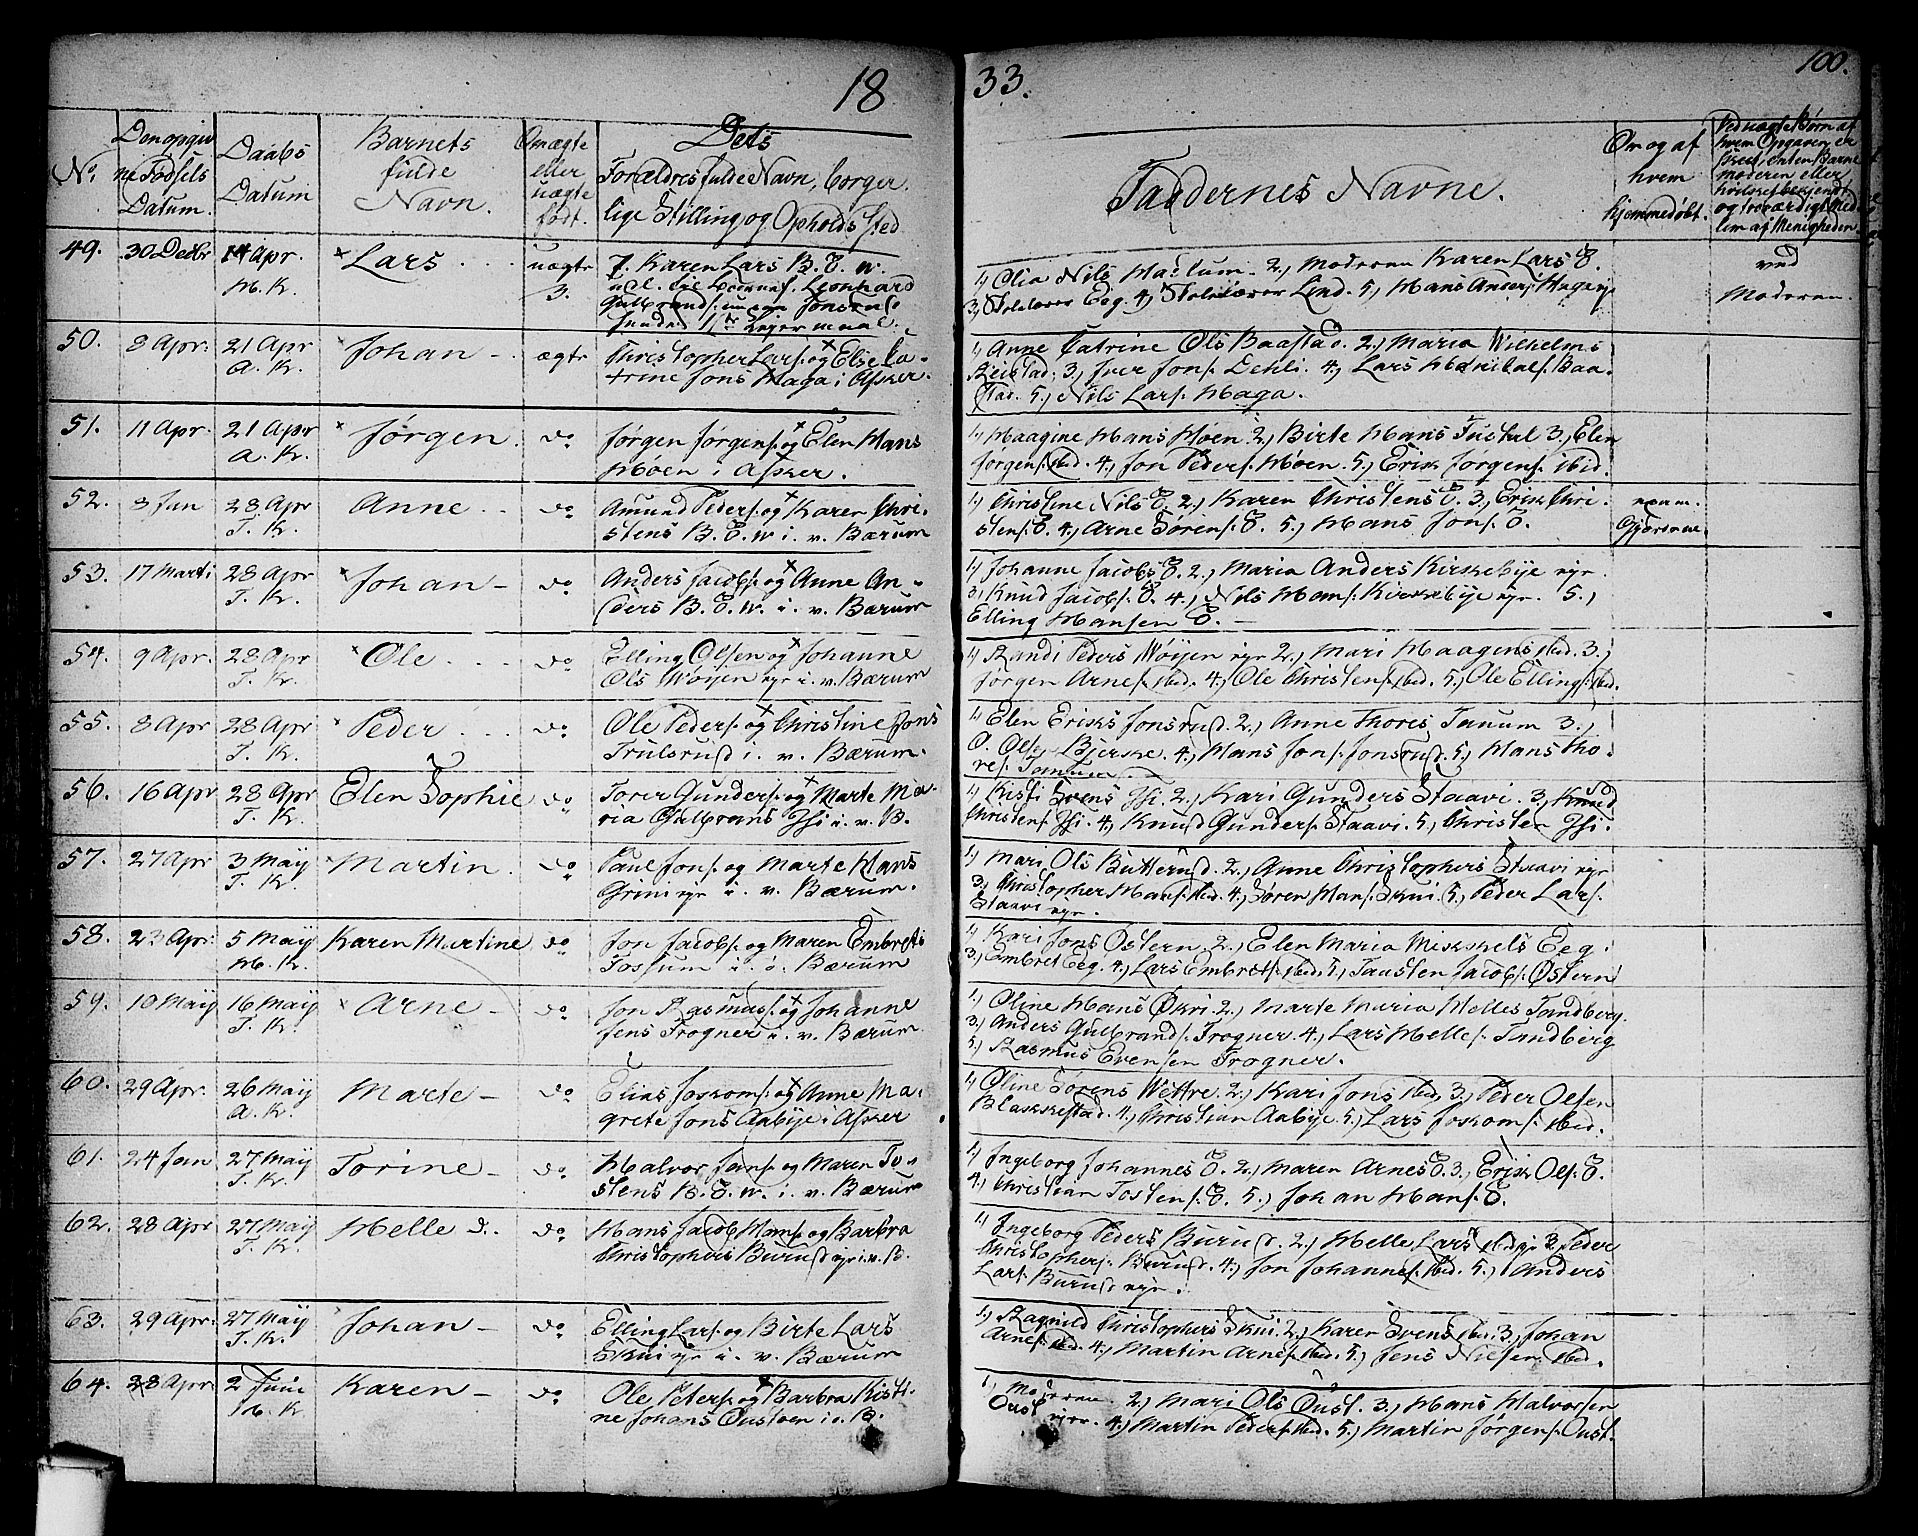 18
33.
100.
No.
Den opgiv
ne Fødsels
Datum.
Daabs
Datum
Barnets
fulde
Navn.
Om ægte
eller
uægte
født.
Dets
Forældres fulde Navn, borger
lige Stilling og Opholds sted
Faddernes Navne.
Om og af
hvem
hjemmedøbt.
Ved uægte Børn af
hvem Opgaven er
skeet, enten Barne
moderen eller
og troværdigt Med
lem af Menigheden
49. 30 Decbr 14 Apr. × Lars uægte
H. K. 3.
P. Karen Lars B. E. W.
Leonhard
Gulbrands.
1ste Lejermaal
1, Olia Nils Haslum. 2, Moderen Karen Lars E.
3, Eeg. 4, Lind. 5, Hans Anders. Hagen
ved
Moderen.
50. 8 Apr. 21 Apr × Johan ægte
A. K.
Christopher Lars. og Else Ca-
trine Jons Haga i Asker.
1, Anne Catrine Ols Baastad. 2, Maria Wilhelms
Beistad; 3, Iver Jons. Dehli. 4, Lars Hanibals. Baa-
stad. 5, Nils Lars. Haga.
51. 11 Apr. 21 Apr × Jørgen. do
A. K.
Jørgen Jørgens. og × Elen Hans
Høen i Asker.
1, Haagine Hans Høen. 2, Birte Hans Tustal 3, Elen
Jørgens. ibid. 4, Jon Peders. Høen. 5, Erik Jørgens. ibid.
52. 8 Jan 28 Apr Anne do
T. K.
Amund Peders. og × Karen Chri-
stens B. E. W i. v. Bærum
1, Christine Nils E. 2, Karen Christens E. 3, Erik Chri-
stens. E. 4, Arne Sørens. E. 5, Hans Jons. E.
exam.
Gjørsme.
53. 17 Marti 28 Apr × Johan do
T. K.
Anders Jacobs. og × Anne An-
ders B. E. W. i. v. Bærum
1, Johanne Jacobs E. 2, Maria Anders Kirkebye eyr.
3, Knud Jacobs. E. 4, Nils Hans. Kirkebye eyr. 5,
Elling Hansen E.
54. 9 Apr. 28 Apr × Ole do
T. K.
Elling Olsen og × Johanne
Ols Wøyen eyr i. v. Bærum
1, Randi Peders Wøyen eyr 2, Mari Haagens ibid. 3,
Jørgen Arnes. ibid. 4, Ole Christens. ibid. 5, Ole Ellings. ibid.
55. 8 Apr 28 Apr × Peder do
T. K.
Ole Peders. og × Christine Jons
Trulsrud i. v. Bærum.
1, Elen Eriks Jonsrud. 2, Anne Thores Tanum 3,
O. Olsen Bjerke. 4, Hans Jons. Jonsrud. 5, Hans Tho-
res. Tanum
56. 16 Apr 28 Apr Elen Sophie do
T. K.
Torer Gunders. og × Marte Ma-
ria Gulbrans Isi i. v. B.
1, Kisti Svens Isi. 2, Kari Gunders Staavi. 3, Knud
Christens. Isi. 4, Knud Gunders. Staavi. 5, Christen Isi.
57. 27 Apr 3 May × Martin. do
T. K.
Paul Jons. og Marte Hans
Grini eyr i. v. Bærum.
1, Mari Ols Butterud. 2, Anne Christophers Staavi eyr
3, Christopher Hans. ibid. 4, Søren Hans. Skui. 5, Peder Lars.
Staavi eyr.
58. 23 Apr. 5 May Karen Martine do
H. K.
Jon Jacobs. og Maren Embrets
Tossum i. ø. Bærum
1, Kari Jons Østern. 2, Elen Maria Mikkels Eeg.
3, Embret Eeg. 4, Lars Embrets. ibid. 5, Tausten Jacobs. Østern
59. 10 May 16 May × Arne do
T. K.
Jon Rasmus. og × Johanne
Jens Frogner i. v. Bærum.
1, Oline Hans Økri 2, Marte Maria Helles Tandberg.
3, Anders Gulbrands. Frogner 4, Lars Helles. Tandberg
5, Rasmus Evensen Frogner.
60. 29 Apr. 26 May Marte do
A. K.
Elias Joskoms. og × Anne Ma-
grete Jons Aabye i Asker
1, Oline Sørens Wettre. 2, Kari Jons ibid. 3, Peder Olsen
Blakkestad. 4, Christian Aabye. 5, Lars Joskoms. ibid.
61. 24 Jan 27 May Torine do
T. K.
Halvor Jans. og Maren To-
stens B. E. W. i. v. Bærum
1, Ingeborg Johannes E. 2, Maren Arnes E. 3, Erik Ols. E.
4, Christian Tostens. E. 5, Johan Hans. E.
62. 28 Apr 27 May Helle do
T. K.
Hans Jacob Hans. og Barbra
Christophers Burud eyr i. v. B.
1, Ingeborg Peders Burud. 2, Helle Lars ibid. 3, Peder
Christophers. Burud. 4, Jon Johannes. ibid. 5, Anders
Lars. Burud eyr.
63. 29 Apr. 27 May × Johan do
T. K.
Elling Lars. og Birte Lars
Skui eyr i. v. Bærum
1, Ragnild Christophers Skui. 2, Karen Svens ibid. 3, Johan
Arnes. ibid. 4, Martin Arnes. ibid. 5, Jens Nielsen ibid.
64. 28 Apr. 2 Juni Karen do
H. K
Ole Peters. og × Barbra Kisti-
ne Johans Oustøen i. ø. B.
1, Moderen. 2, Mari Ols Oust. 3, Hans Halvorsen
Oust eyr. 4, Martin Peders. ibid. 5, Martin Jørgens. Oust.